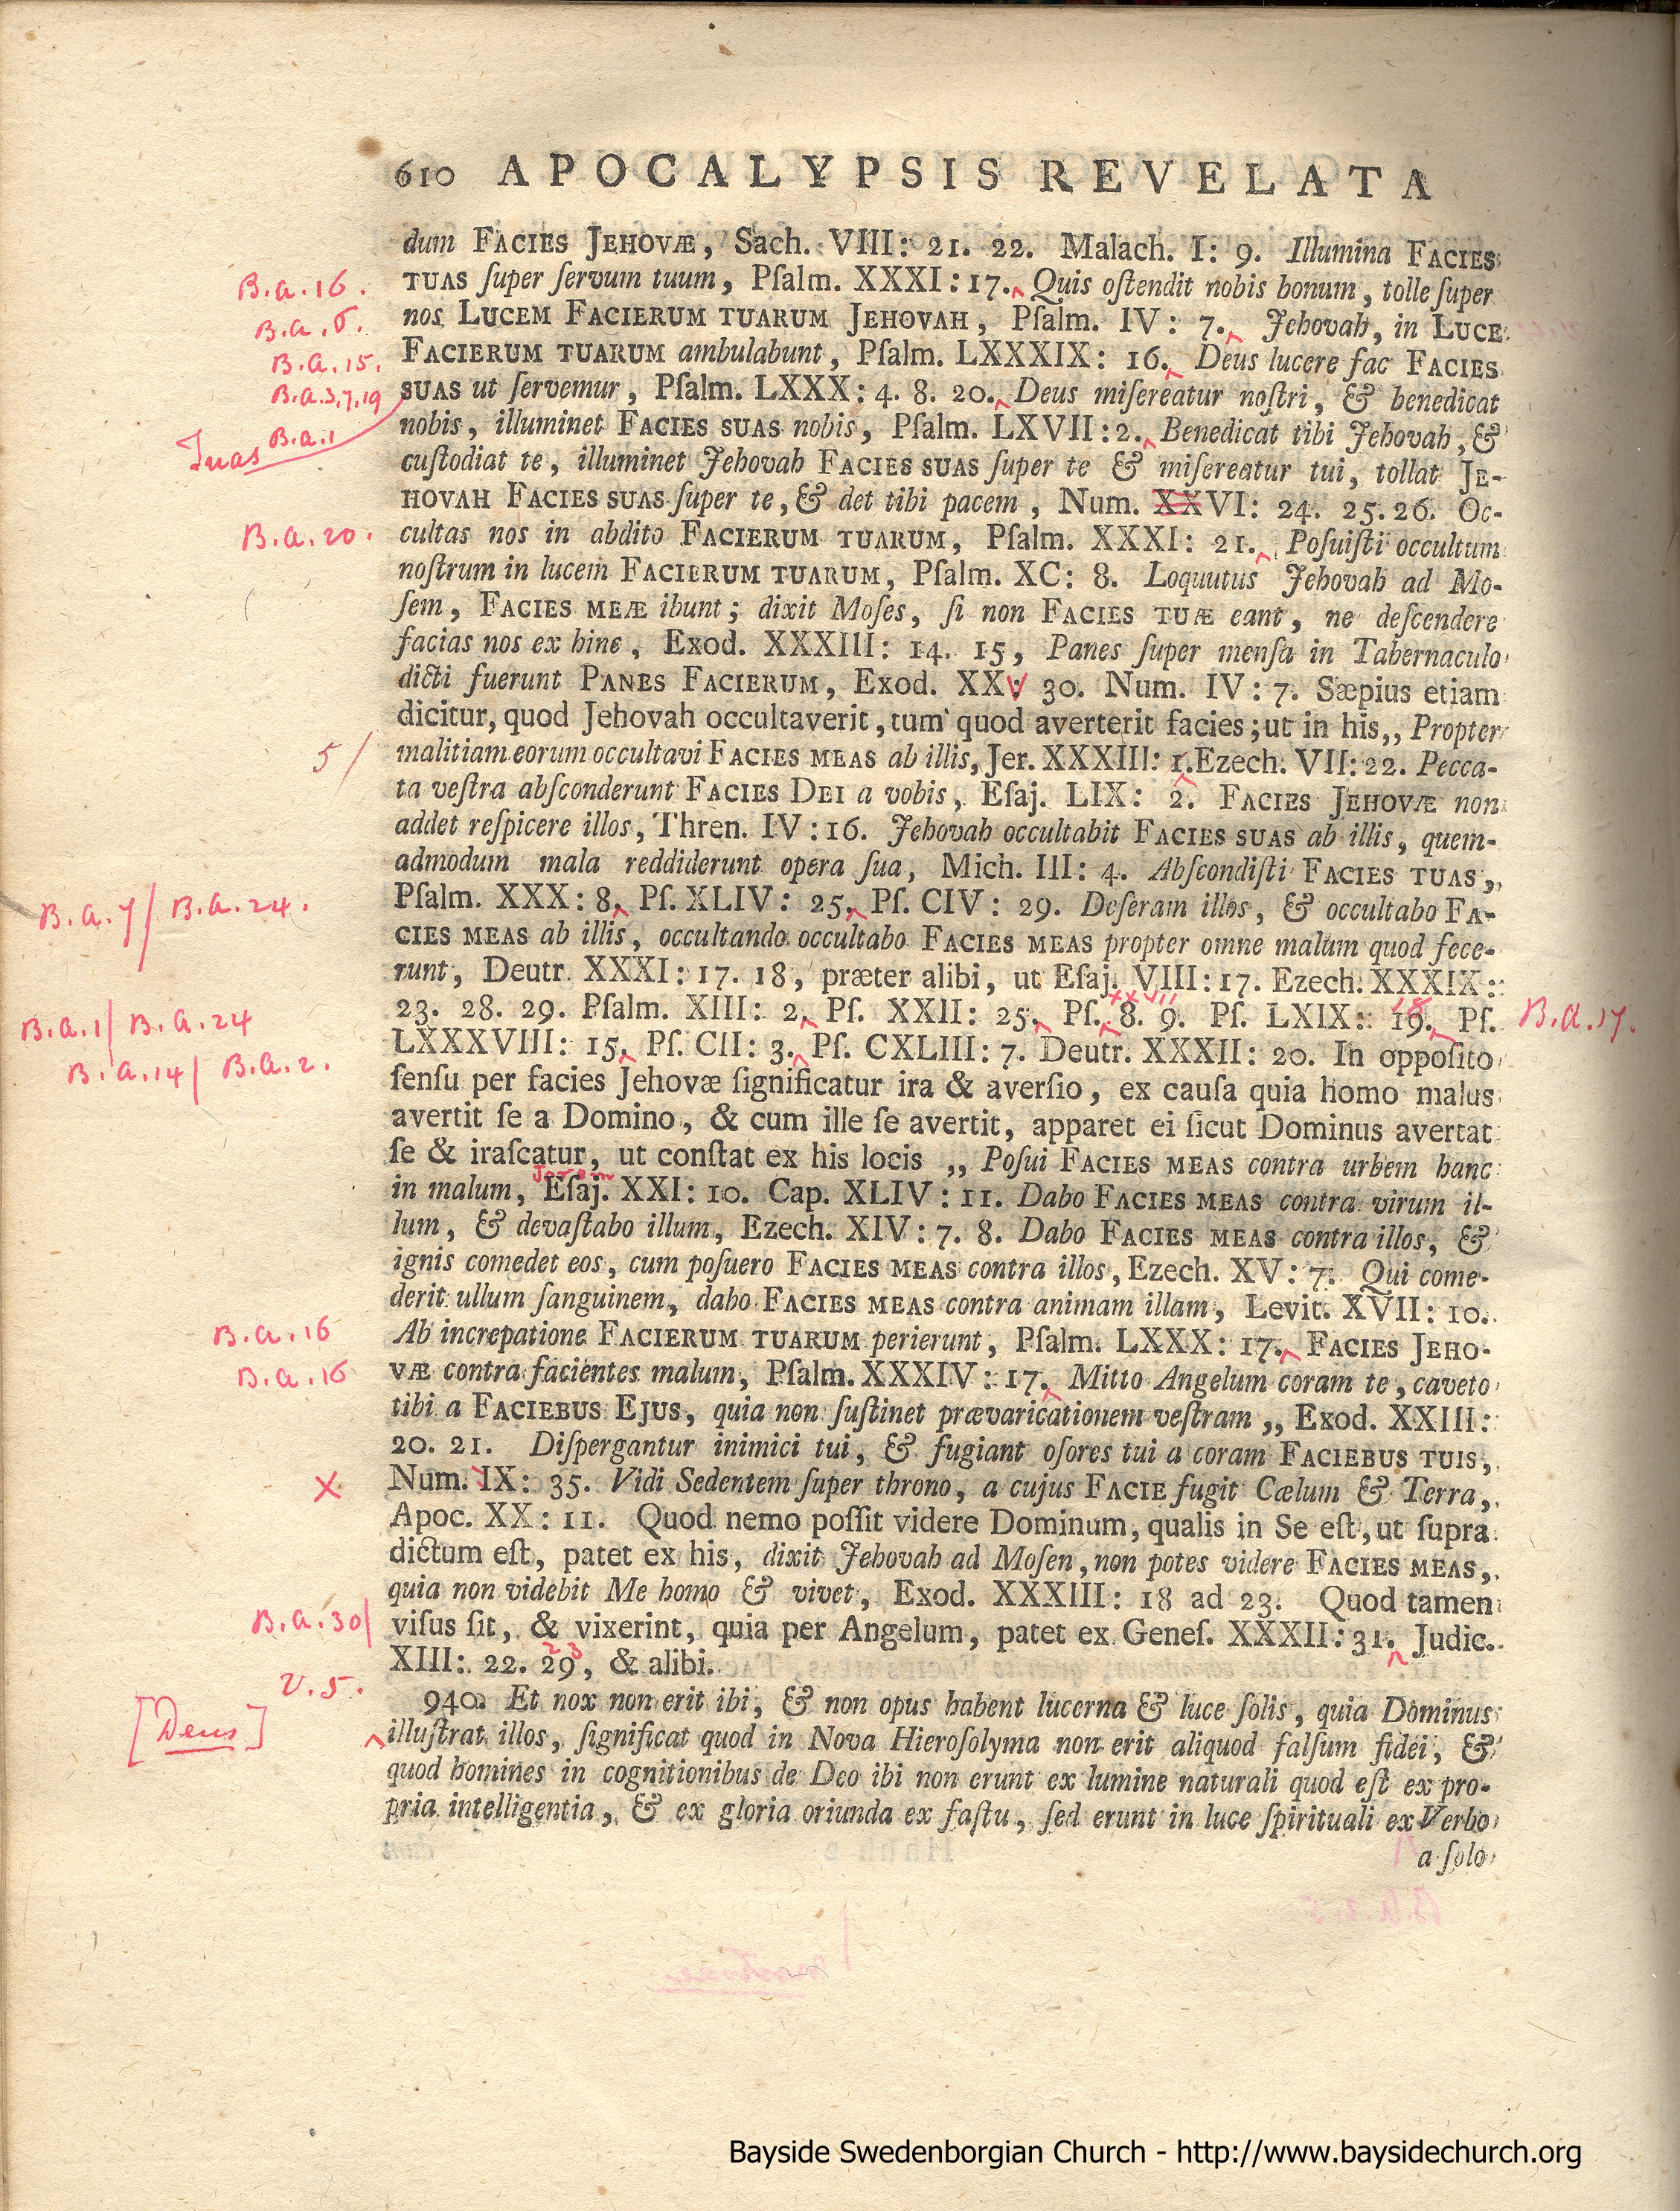 610 APOCALYPSIS REVELATA
dum FACIES JEHOVÆ, Sach. VIII: 21. 22. Malach. I: 9. Illumina FACIES
B.a.16.
TUAS ſuper ſervum tuum, Pſalm. XXXI: 17. Quis oſtendit nobis bonum, tolle ſuper
B.a.6.
nos LUCEM FACIERUM TUARUM JEHOVAH, Pſalm. IV: 7. Jehovah, in LUCE
B.a.15.
FACIERUM TUARUM ambulabunt, Pſalm. LXXXIX: 16. Deus lucere fac FACIES
B.a.3,7,19
SUAS ut ſervemur, Pſalm. LXXX: 4. 8. 20. Deus miſereatur noſtri, & benedicat
B.a.1
Tuas
nobis, illuminet FACIES SUAS nobis, Pſalm. LXVII: 2. Benedicat tibi Jehovah, &
cuſtodiat te, illuminet Jehovah FACIES SUAS ſuper te & miſereatur tui, tollat JE-
HOVAH FACIES SUAS ſuper te, & det tibi pacem, Num. XXVI: 24. 25. 26. Oc-
B.a.20.
cultas nos in abdito FACIERUM TUARUM, Pſalm. XXXI: 21. Poſuiſti occultum
noſtrum in lucem FACIERUM TUARUM, Pſalm. XC: 8. Loquutus Jehovah ad Mo-
ſem, FACIES MEÆ ibunt; dixit Moſes, ſi non FACIES TUÆ eant, ne deſcendere
facias nos ex hinc, Exod. XXXIII: 14. 15, Panes ſuper menſa in Tabernaculo
dicti fuerunt PANES FACIERUM, Exod. XXV 30. Num. IV: 7. Sæpius etiam
dicitur, quod Jehovah occultaverit, tum quod averterit facies; ut in his,, Propter
5/
malitiam eorum occultavi FACIES MEAS ab illis, Jer. XXXIII: 1. Ezech. VII: 22. Pecca-
ta veſtra abſconderunt FACIES DEI a vobis, Eſaj. LIX: 2. FACIES JEHOVÆ non
addet reſpicere illos, Thren. IV: 16. Jehovah occultabit FACIES SUAS ab illis, quem-
admodum mala reddiderunt opera ſua, Mich. III: 4. Abſcondiſti FACIES TUAS,,
B.a.7/ B.a.24.
Pſalm. XXX: 8. Pſ. XLIV: 25. Pſ. CIV: 29. Deſeram illos, & occultabo FA-
CIES MEAS ab illis, occultando occultabo FACIES MEAS propter omne malum quod fece-
runt, Deutr. XXXI: 17. 18, præter alibi, ut Eſaj. VIII: 17. Ezech. XXXIX:
xxvii
18
B.a.1/ B.a.24
23. 28. 29. Pſalm. XIII: 2. Pſ. XXII: 25. Pſ. 8. 9. Pſ. LXIX: 19. Pſ.
B.a.17.
B.a.14/ B.a.2.
LXXXVIII: 15. Pſ. CII: 3. Pſ. CXLIII: 7. Deutr. XXXII: 20. In oppoſito
ſenſu per facies Jehovæ ſignificatur ira & averſio, ex cauſa quia homo malus
avertit ſe a Domino, & cum ille ſe avertit, apparet ei ſicut Dominus avertat
ſe & iraſcatur, ut conſtat ex his locis ,, Poſui FACIES MEAS contra urbem hanc
Jerem
in malum, Eſaj. XXI: 10. Cap. XLIV: 11. Dabo FACIES MEAS contra virum il-
lum, & devaſtabo illum, Ezech. XIV: 7. 8. Dabo FACIES MEAS contra illos, &
ignis comedet eos, cum poſuero FACIES MEAS contra illos, Ezech. XV: 7. Qui come-
derit ullum ſanguinem, dabo FACIES MEAS contra animam illam, Levit. XVII: 10.
B.a.16
Ab increpatione FACIERUM TUARUM perierunt, Pſalm. LXXX: 17. FACIES JEHO-
B.a.16
VÆ contra facientes malum, Pſalm. XXXIV: 17. Mitto Angelum coram te, caveto
tibi a FACIEBUS EJUS, quia non ſuſtinet prævaricationem veſtram ,, Exod. XXIII:
20. 21. Diſpergantur inimici tui, & fugiant oſores tui a coram FACIEBUS TUIS,
X
Num. IX: 35. Vidi Sedentem ſuper throno, a cujus FACIE fugit Cœlum & Terra,
Apoc. XX: 11. Quod nemo poſſit videre Dominum, qualis in Se eſt, ut ſupra
dictum eſt, patet ex his, dixit Jehovah ad Moſen, non potes videre FACIES MEAS,
quia non videbit Me homo & vivet, Exod. XXXIII: 18 ad 23. Quod tamen
B.a.30/
viſus ſit, & vixerint, quia per Angelum, patet ex Geneſ. XXXII: 31. Judic.
23
XIII: 22. 29, & alibi.
V.5.
940. Et nox non erit ibi, & non opus habent lucerna & luce ſolis, quia Dominus
[Deus]
illuſtrat illos, ſignificat quod in Nova Hieroſolyma non erit aliquod falſum fidei, &
quod homines in cognitionibus de Deo ibi non erunt ex lumine naturali quod eſt ex pro-
pria intelligentia, & ex gloria oriunda ex faſtu, ſed erunt in luce ſpirituali ex Verbo
a ſolo
Bayside Swedenborgian Church - http://www.baysidechurch.org